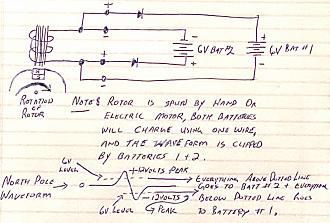 +
-
+
-
-
+
6V BAT #2
+
-
6V BAT #1
N S
ROTATION
OF
ROTOR
NOTE: ROTOR IS SPUN BY HAND OR
ELECTRIC MOTOR, BOTH BATTERIES
WILL CHARGE USING ONE WIRE,
AND THE WAVEFORM IS CLIPPED
BY BATTERIES 1 + 2.
6V
LEVEL
+12VOLTS PEAK
EVERYTHING ABOVE DOTTED LINE
GOES TO BATT #2 + EVERYTHING
NORTH POLE
WAVEFORM
-12VOLTS
PEAK
BELOW DOTTED LINE GOES
TO BATTERY #1,
6V LEVEL